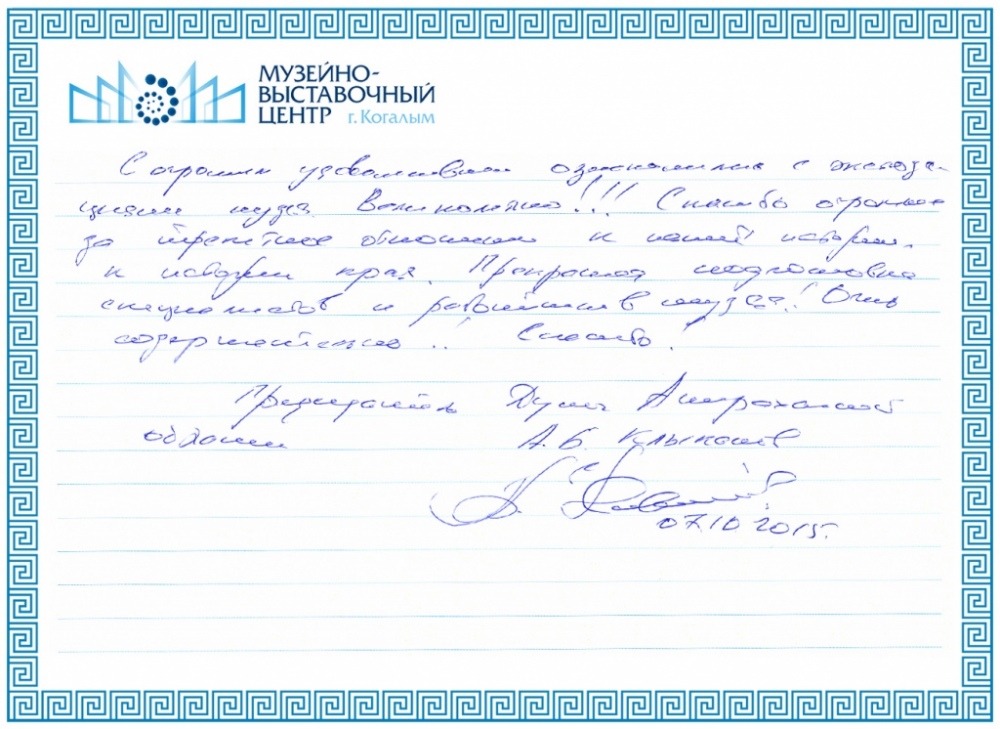 МУЗЕЙНО-
ВЫСТАВОЧНЫЙ
ЦЕНТР г. Когалым
С огромным удовольствием ознакомились с экспози-
циями музея Великолепно!!! Спасибо огромное
за трепетное отношение к нашей истории,
к истории края. Прекрасная подготовка
специалистов и музея! Очень
содержательно!! Спасибо!
Председатель Думы Астраханской
области А.Б. Клыканов
07.10.2015.